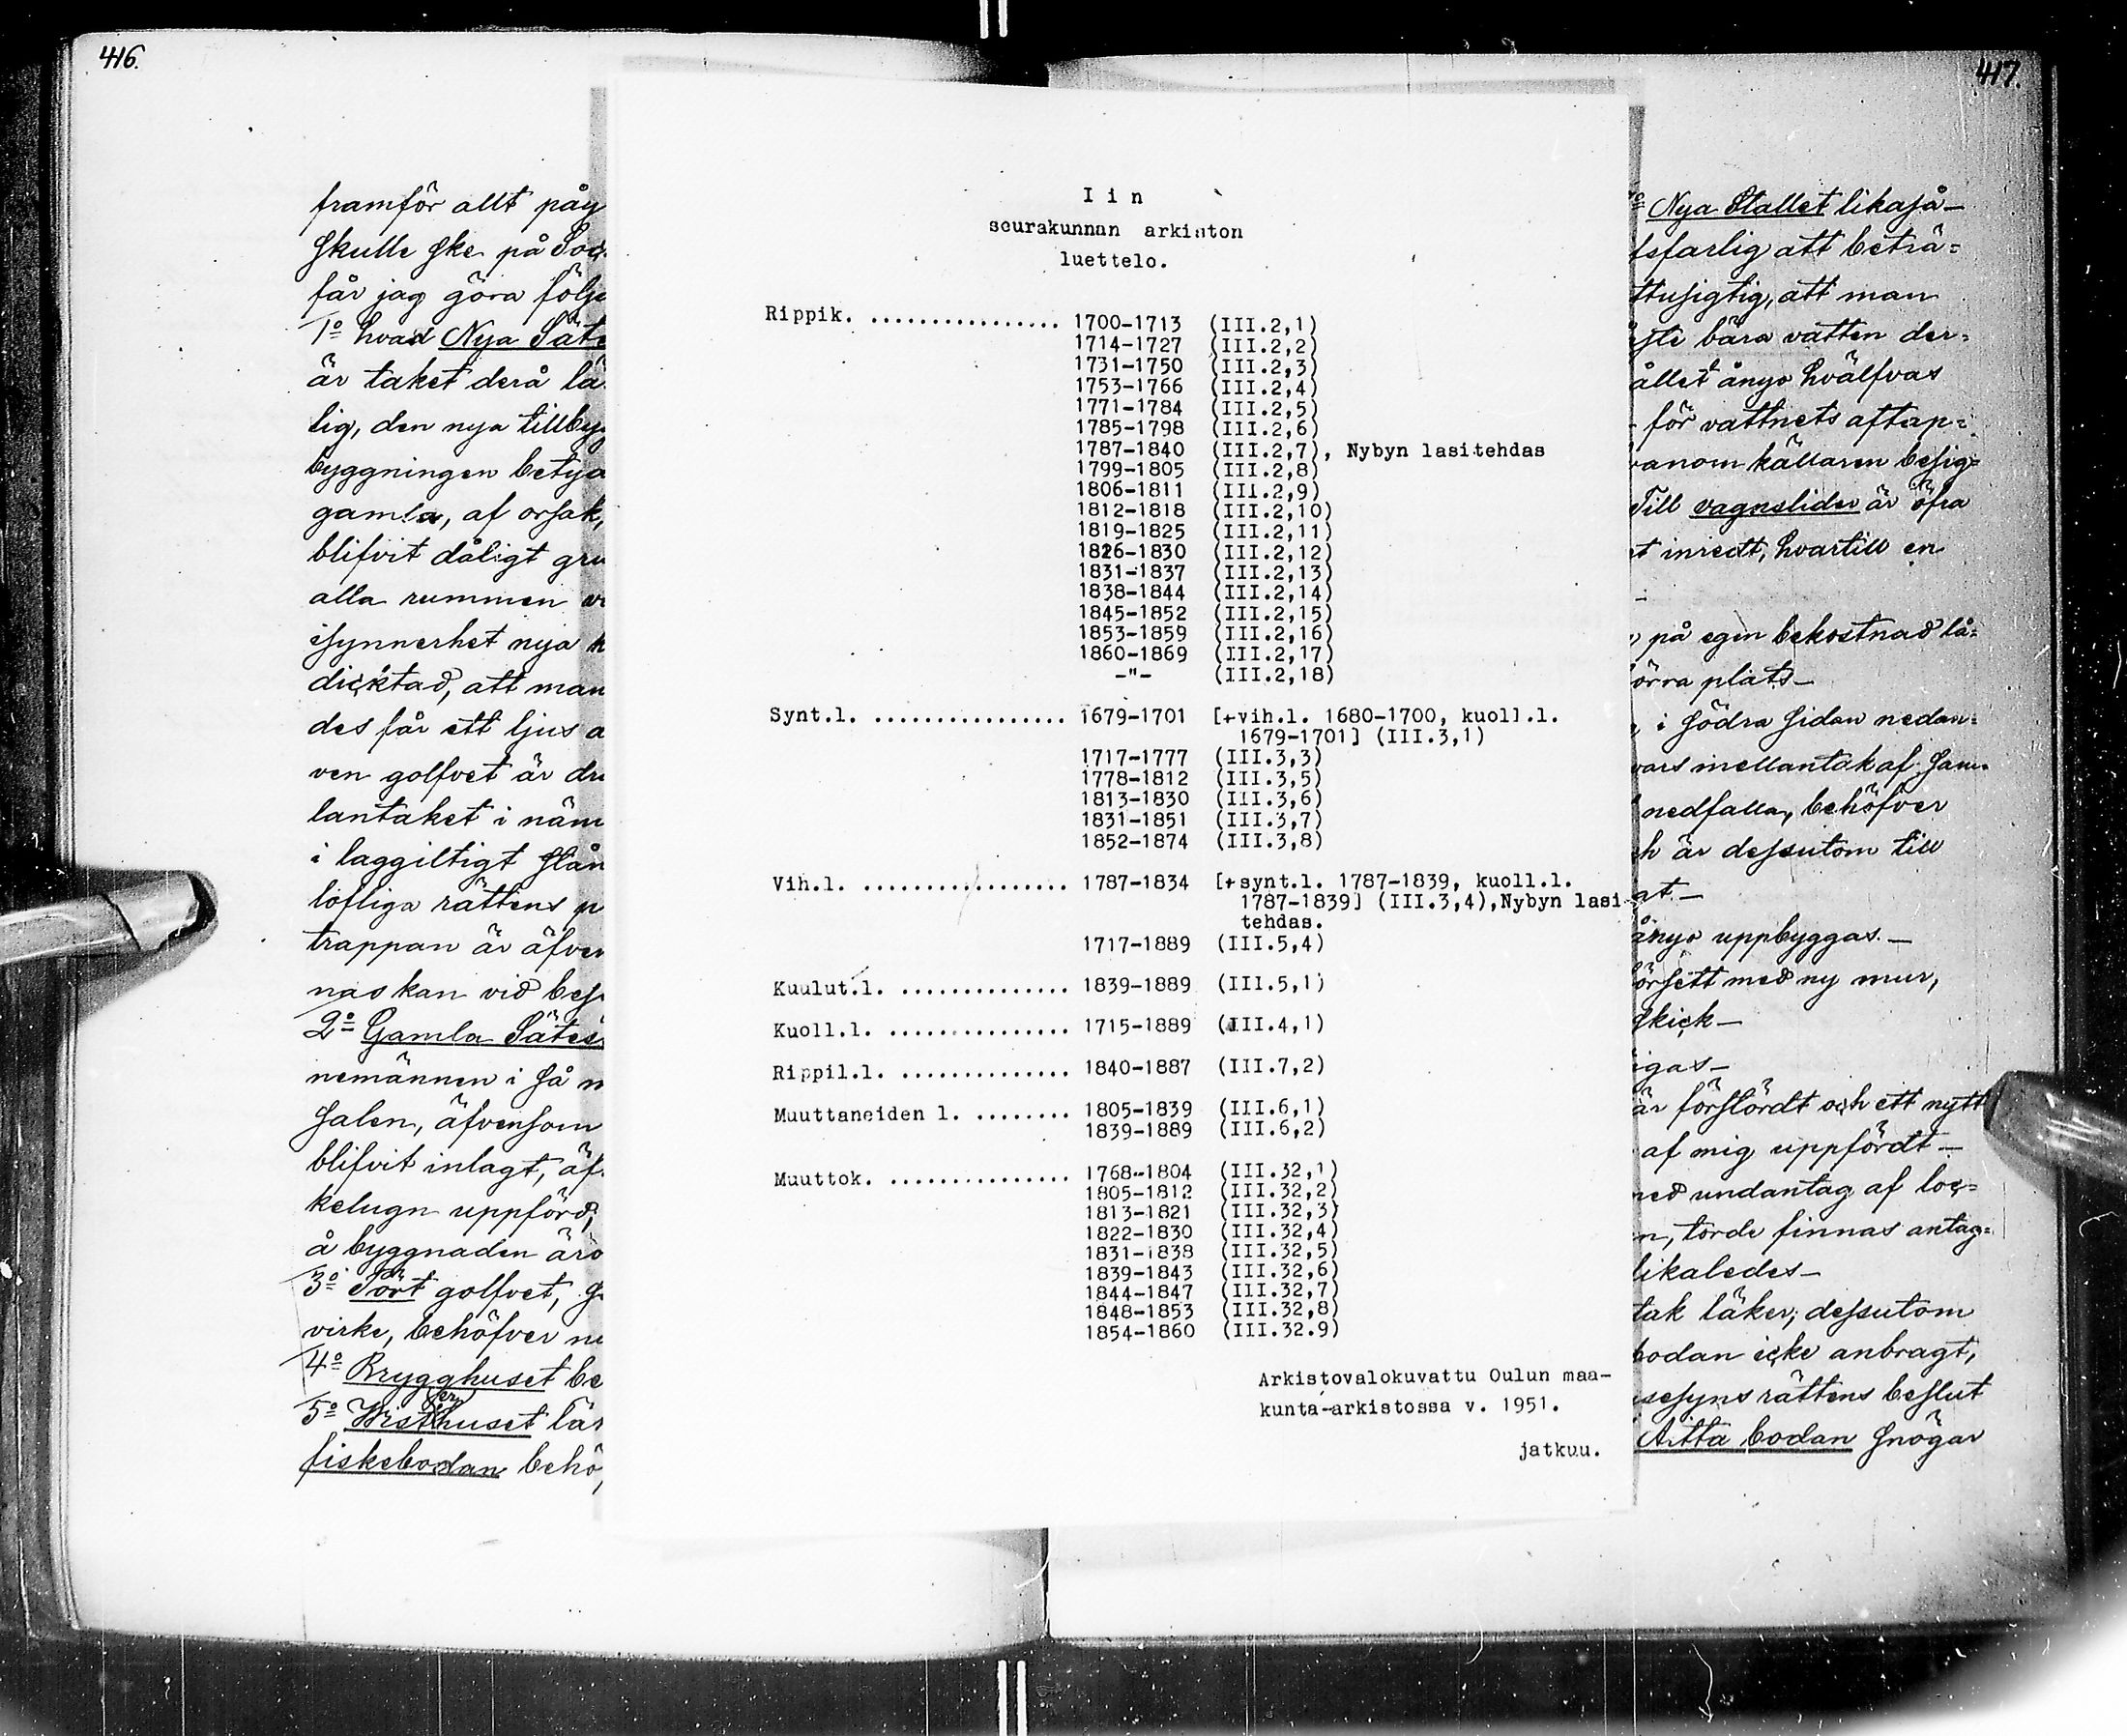 416.
framför allt påy
skulle ske på Soc
får jag göra följ
1o hvad Nya Säte
är taket derå lä
lig, den nya tillby
byggningen betyd
gamla, af orsak,
blifvit dåligt gru
alla rummen
isynnerhet nya
dicktad, att man
des får ett ljus a
ven golfvet är dr
lantaket i näm
i laggiltigt stån
lofliga rättens
trappan är äfven
nas kan vid bes
2o Gamla Sätes
nemännen i så
Salen, äfvensom
blifvit inlagt, äf
kelugn uppförd,
å byggnaden äro
3o Pört golfvet,
virke, behöfver
4o Brygghuset be
5o Wisthuset lär
fiskebodan behö
Iin
seurakunnan arkiston
luettelo.
Rippik. ................ 1700-1713 (III.2,1)
1714-1727 (III.2,2)
1731-1750 (III.2,3)
1753-1766 (III.2,4)
1771-1784 (III.2,5)
1785-1798 (III.2,6)
1787-1840 (III.2,7), Nybyn lasitehdas
1799-1805 (III.2,8)
1806-1811 (III.2,9)
1812-1818 (III.2,10)
1819-1825 (III.2,11)
1826-1830 (III.2,12)
1831-1837 (III.2,13)
1838-1844 (III.2,14)
1845-1852 (III.2,15)
1853-1859 (III.2,16)
1860-1869 (III.2,17)
-"- (III.2,18)
Synt.l. ................ 1679-1701 [+vih.l. 1680-1700, kuoll.l.
1679-1701] (III.3,1)
1717-1777 (III.3,3)
1778-1812 (III.3,5)
1813-1830 (III.3,6)
1831-1851 (III.3,7)
1852-1874 (III.3,8)
Vih.l. ................. 1787-1834 [+synt.l. 1787-1839, kuoll.l.
1787-1839] (III.3,4),Nybyn lasi-
tehdas.
1717-1889 (III.5,4)
Kuulut.l. .............. 1839-1889 (III.5,1)
Kuoll.l. ............... 1715-1889 (III.4,1)
Rippil.l. .............. 1840-1887 (III.7,2)
Muuttaneiden l. ........ 1805-1839 (III.6,1)
1839-1889 (III.6,2)
Muuttok. ............... 1768-1804 (III.32,1)
1805-1812 (III.32,2)
1813-1821 (III.32,3)
1822-1830 (III.32,4)
1831-1838 (III.32,5)
1839-1843 (III.32,6)
1844-1847 (III.32,7)
1848-1853 (III.32,8)
1854-1860 (III.32.9)
Arkistovalokuvattu Oulun maa-
kunta-arkistossa v. 1951.
jatkuu.
417.
Nya Stallet likaså—
tsfarlig att beträ=
ttusigtig, att man
bära vatten der=
ållet ånyo hvälfvas
för vattnets aftap=
anom källaren besig=
Till vagnslider är öfra
t inredt, hvartill en
på egin bekostnad lå=
örra plats—
i södra sidan nedan=
vars mellantak af sam=
nedfalla, behöfver
h är dessutom till
at.—
ånyo uppbyggas.—
örsett med ny mur,
skick—
igas—
är förstördt och ett nytt
af mig uppfördt—
med undantag af loc=
n, torde finnas antag=
likaledes—
tak läker, dessutom
bodan icke anbragt,
sesyns rättens beslut
Aitta bodan snögar